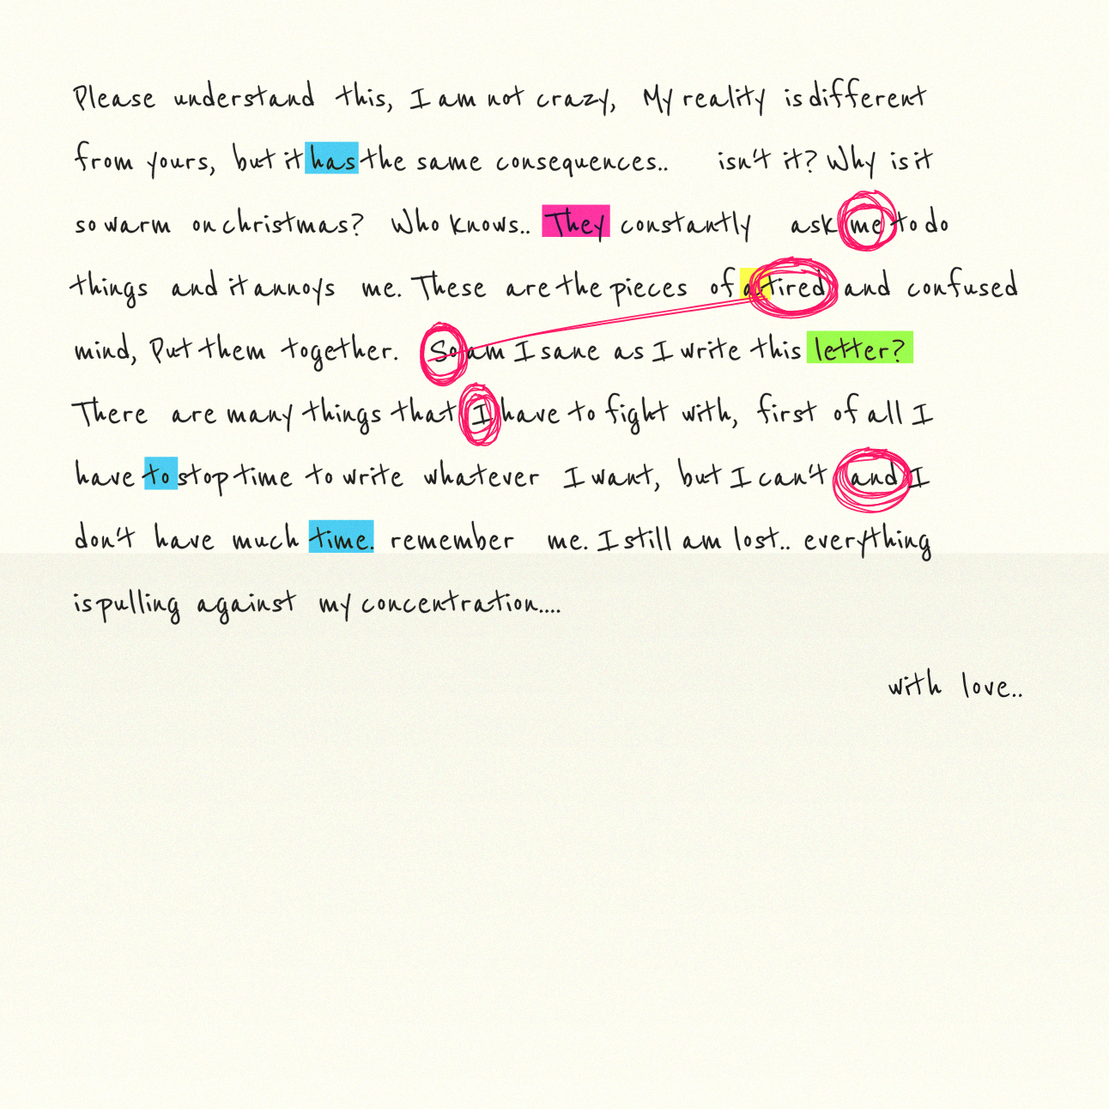 Please understand this, I am not crazy, My reality is different
from yours, but it has the same consequences.. isn't it? Why is it
so warm on christmas? Who knows.. They constantly ask me to do
things and it annoys me. These are the pieces of a tired and confused
mind, Put them together. So am I sane as I write this letter?
There are many things that I have to fight with, first of all I
have to stop time to write whatever I want, but I can't and I
don't have much time. remember me. I still am lost.. everything
is pulling against my concentration....
with love..